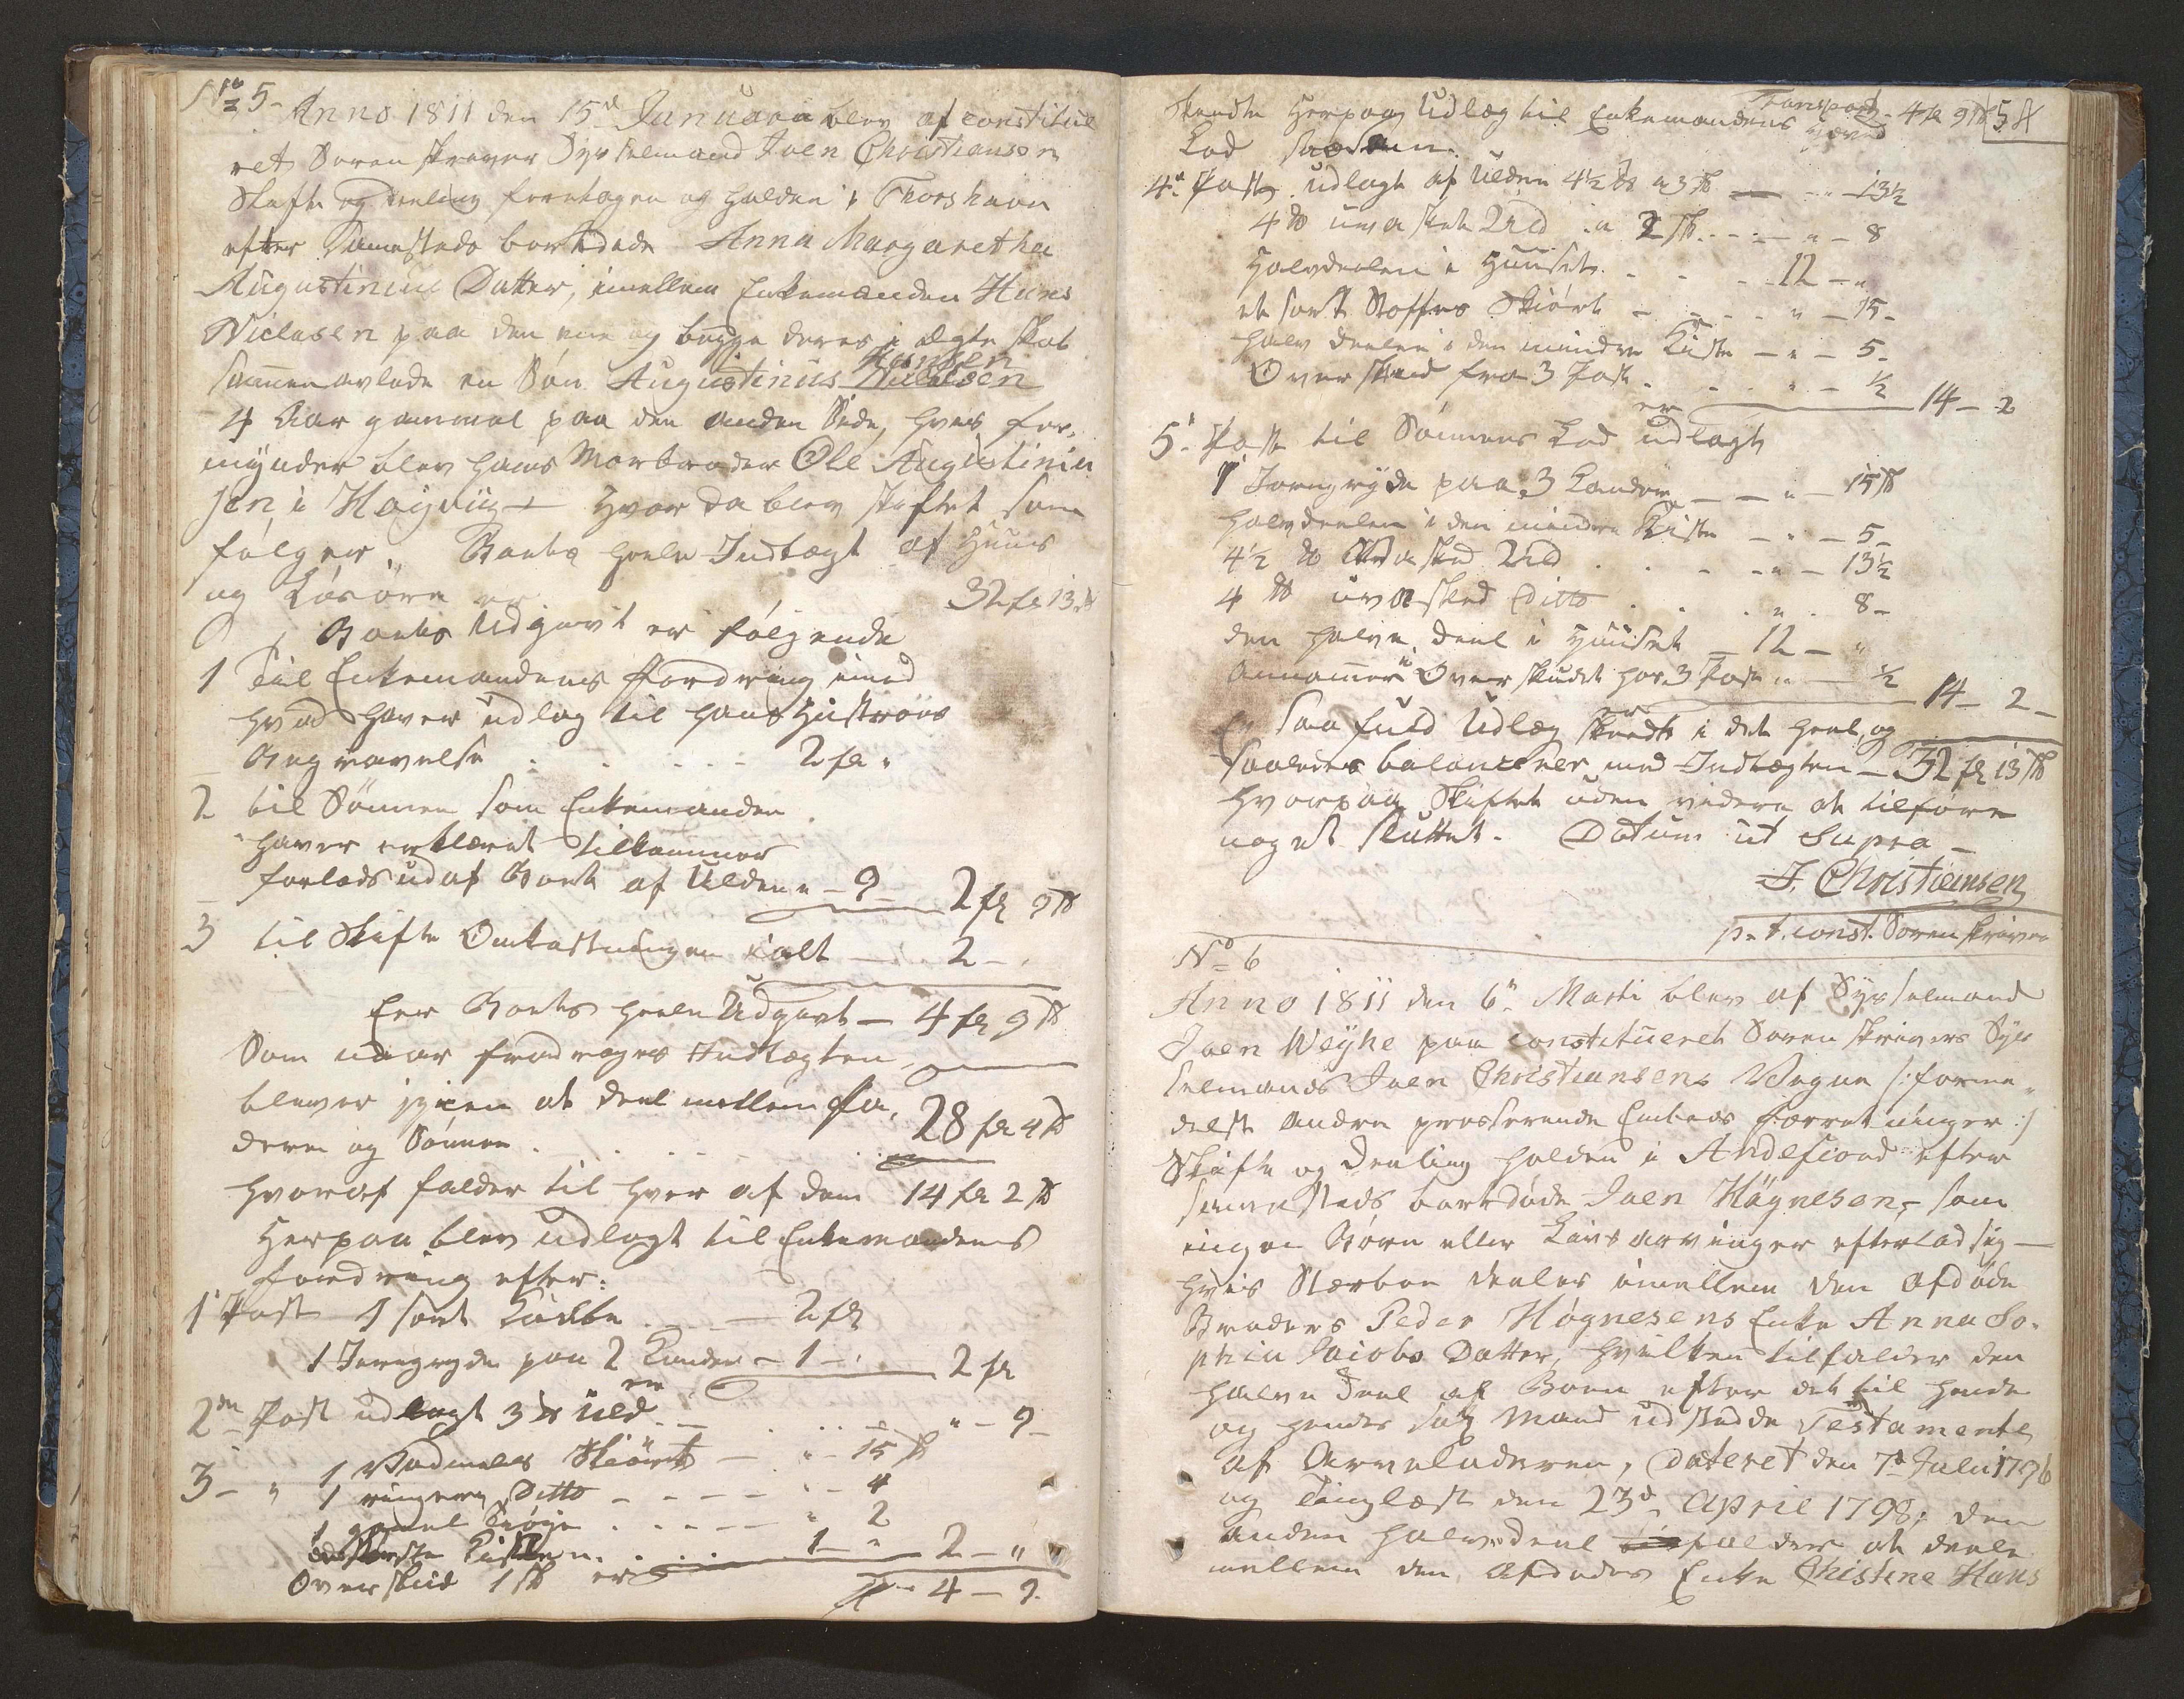 No 5- Anno 1811 den 15d Januarii blev af constitue
ret Sorenskriver Sysselmand Joen Christiansen
Skifte og Deeling foretagen og holden i Thorshavn
efter sammesteds bortdøde Anna Margaretha
Augustinus Datter, imellem Enkemanden Hans
Niclasen paa den ene og begge deres i Ægteskab
Hansen
sammenavlede en Søn Augustinus Niclasen
4 Aar gammel paa den anden Side, hvis for-
mynder blev hans Morbroder Ole Augustinu
sen i Hoyviig — hvor da blev skiftet som
følger. Boets heele Indtægt af Huus
og Løsøre er 32 fl 13 s
Boets Udgivt er følgende
1 Til Enkemandens Fordring imod
hvad haver udlag til hans Hustroes
Begravelse . . . . . 2 fl "
2 til Sønnen som Enkemanden
haver erklæret tilkommer
forlods udaf Boet af Ulden " - 9 - 2 fl 9 s
3 til Skifte Omkostningen i alt — 2 -
Eer Boets heele Udgivt — 4 fl 9 s
Som naar fradrages Indtægten
bliver igien at deele mellem Fa-
deren og Sønnen . . . . 28 fl 4 s
hvoraf falder til hver af dem 14 fl 2 s
Herpaa blev udlagt til Enkemandens
fordring efter:
1' Post 1 sort — 2 fl
1 Jerngryde paa 2 Kander - 1 - 2 fl
er
2den Post udlagt 3 Uld . . . " - 9 -
3 - " 1 Vadmels Skiørt — " - 15 s
1 ringere Ditto - - - - " - 4
1 gamel Trøje . . - - - " 2
største Kisten . . . 1 - " 2 - "
Overskud 1 s er
4 - 9.
Transport - 4 fl 9 s 58
Skeedte herpaa Udlæg til Enkemandens
Lod saasom.
4de Post udlagt af Ulden 4½ a 3 s — " - 13½
4 uvasket Uld a 2 s . - - - " - 8
Halvdeelen i Huuset . . . 12 - "
et sort Stoffes Skiørt - - - - " - 15 -
halv Deelen i den mindre Kiste - " - 5 -
Overskud fra 3 Post . . . " - ½
er 14 - 2
5' Post til Sønnens Lod udlagt
1 Jerngryde paa 3 Kander — - " - 15 s
halvdeelen i den mindre Kiste - " - 5 -
4½ Vasked Uld . . . - " - 13½
4 uvasked Ditto . . . " . 8 -
den halve Deel i Huuset - 12 - "
annammer Overskudet hos 3 Post " — ½
er 14 - 2 -
saa fuld Udlæg skeedt i det heel, og
saaledes balancerer med Indtægten - 32 fl 13 s
hvorpaa Skiftet uden videre at tilføre
noget sluttet. Datum ut Supra -
J. Christiansen
p. t. const. Sorenskriver
No 6
Anno 1811 den 6te Marti blev af Sysselmand
Joen Weyhe paa constitueret Sorenskrivers Sys
selmands Joen Christiansens Vegne /: forme-
delst andre presserende Embeds Forretninger :/
Skifte og Deeling holden i Andefiord efter
sammesteds bortdøde Joen Högnesen, som
ingen Børn eller Livsarvinger efterlod sig —
hvis Sterboe deeles imellem den afdøde
Broders Peder Högnesens Enke Anna So-
phia Jacobs Datter, hvilken tilfalder den
halve Deel af Boen efter det til hende
og hendes sal. Mand udstedde Testamente
af Arveladeren, Dateret den 7de Julii 1796
og Tinglæst den 23de April 1798; den
anden halvedeel falder at deele
mellem den Afdødes Enke Christine Hans